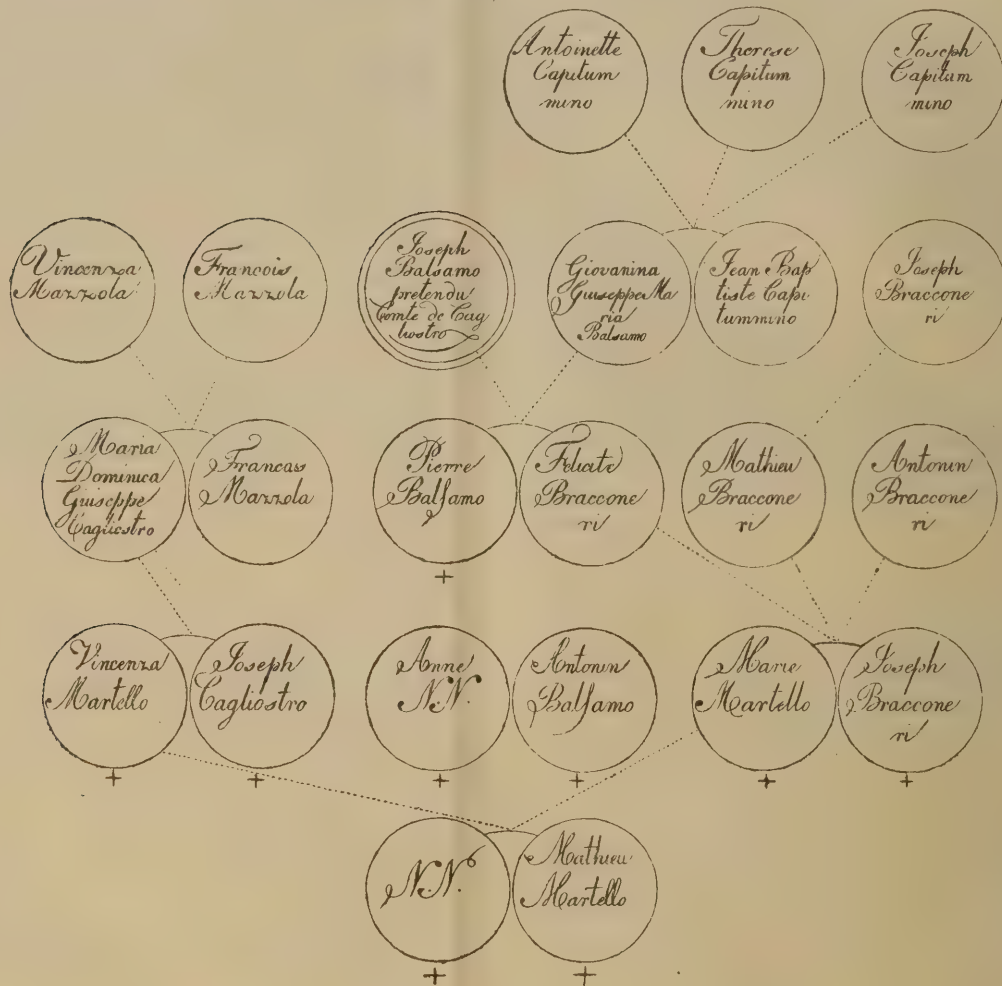 Antoinette
Capitum
mino
Therese
Capitum
mino
Joseph
Capitum
mino
Vincenza
Mazzola
Francois
Mazzola
Joseph
Balsamo
pretendu
Comte de Cag
liostro
Giovanina
Giuseppe Ma
ria
Balsamo
Jean Bap
tiste Capi
tummino
Joseph
Braccone
ri
Maria
Dominica
Giuseppe
Cagliostro
Francois
Mazzola
Pierre
Balsamo
+
Felicite
Braccone
ri
Mathieu
Braccone
ri
Antonin
Braccone
ri
Vincenza
Martello
+
Joseph
Cagliostro
+
Anne
N.N.
+
Antonin
Balsamo
+
Marie
Martello
+
Joseph
Braccone
ri
+
N.N.
+
Mathieu
Martello
+